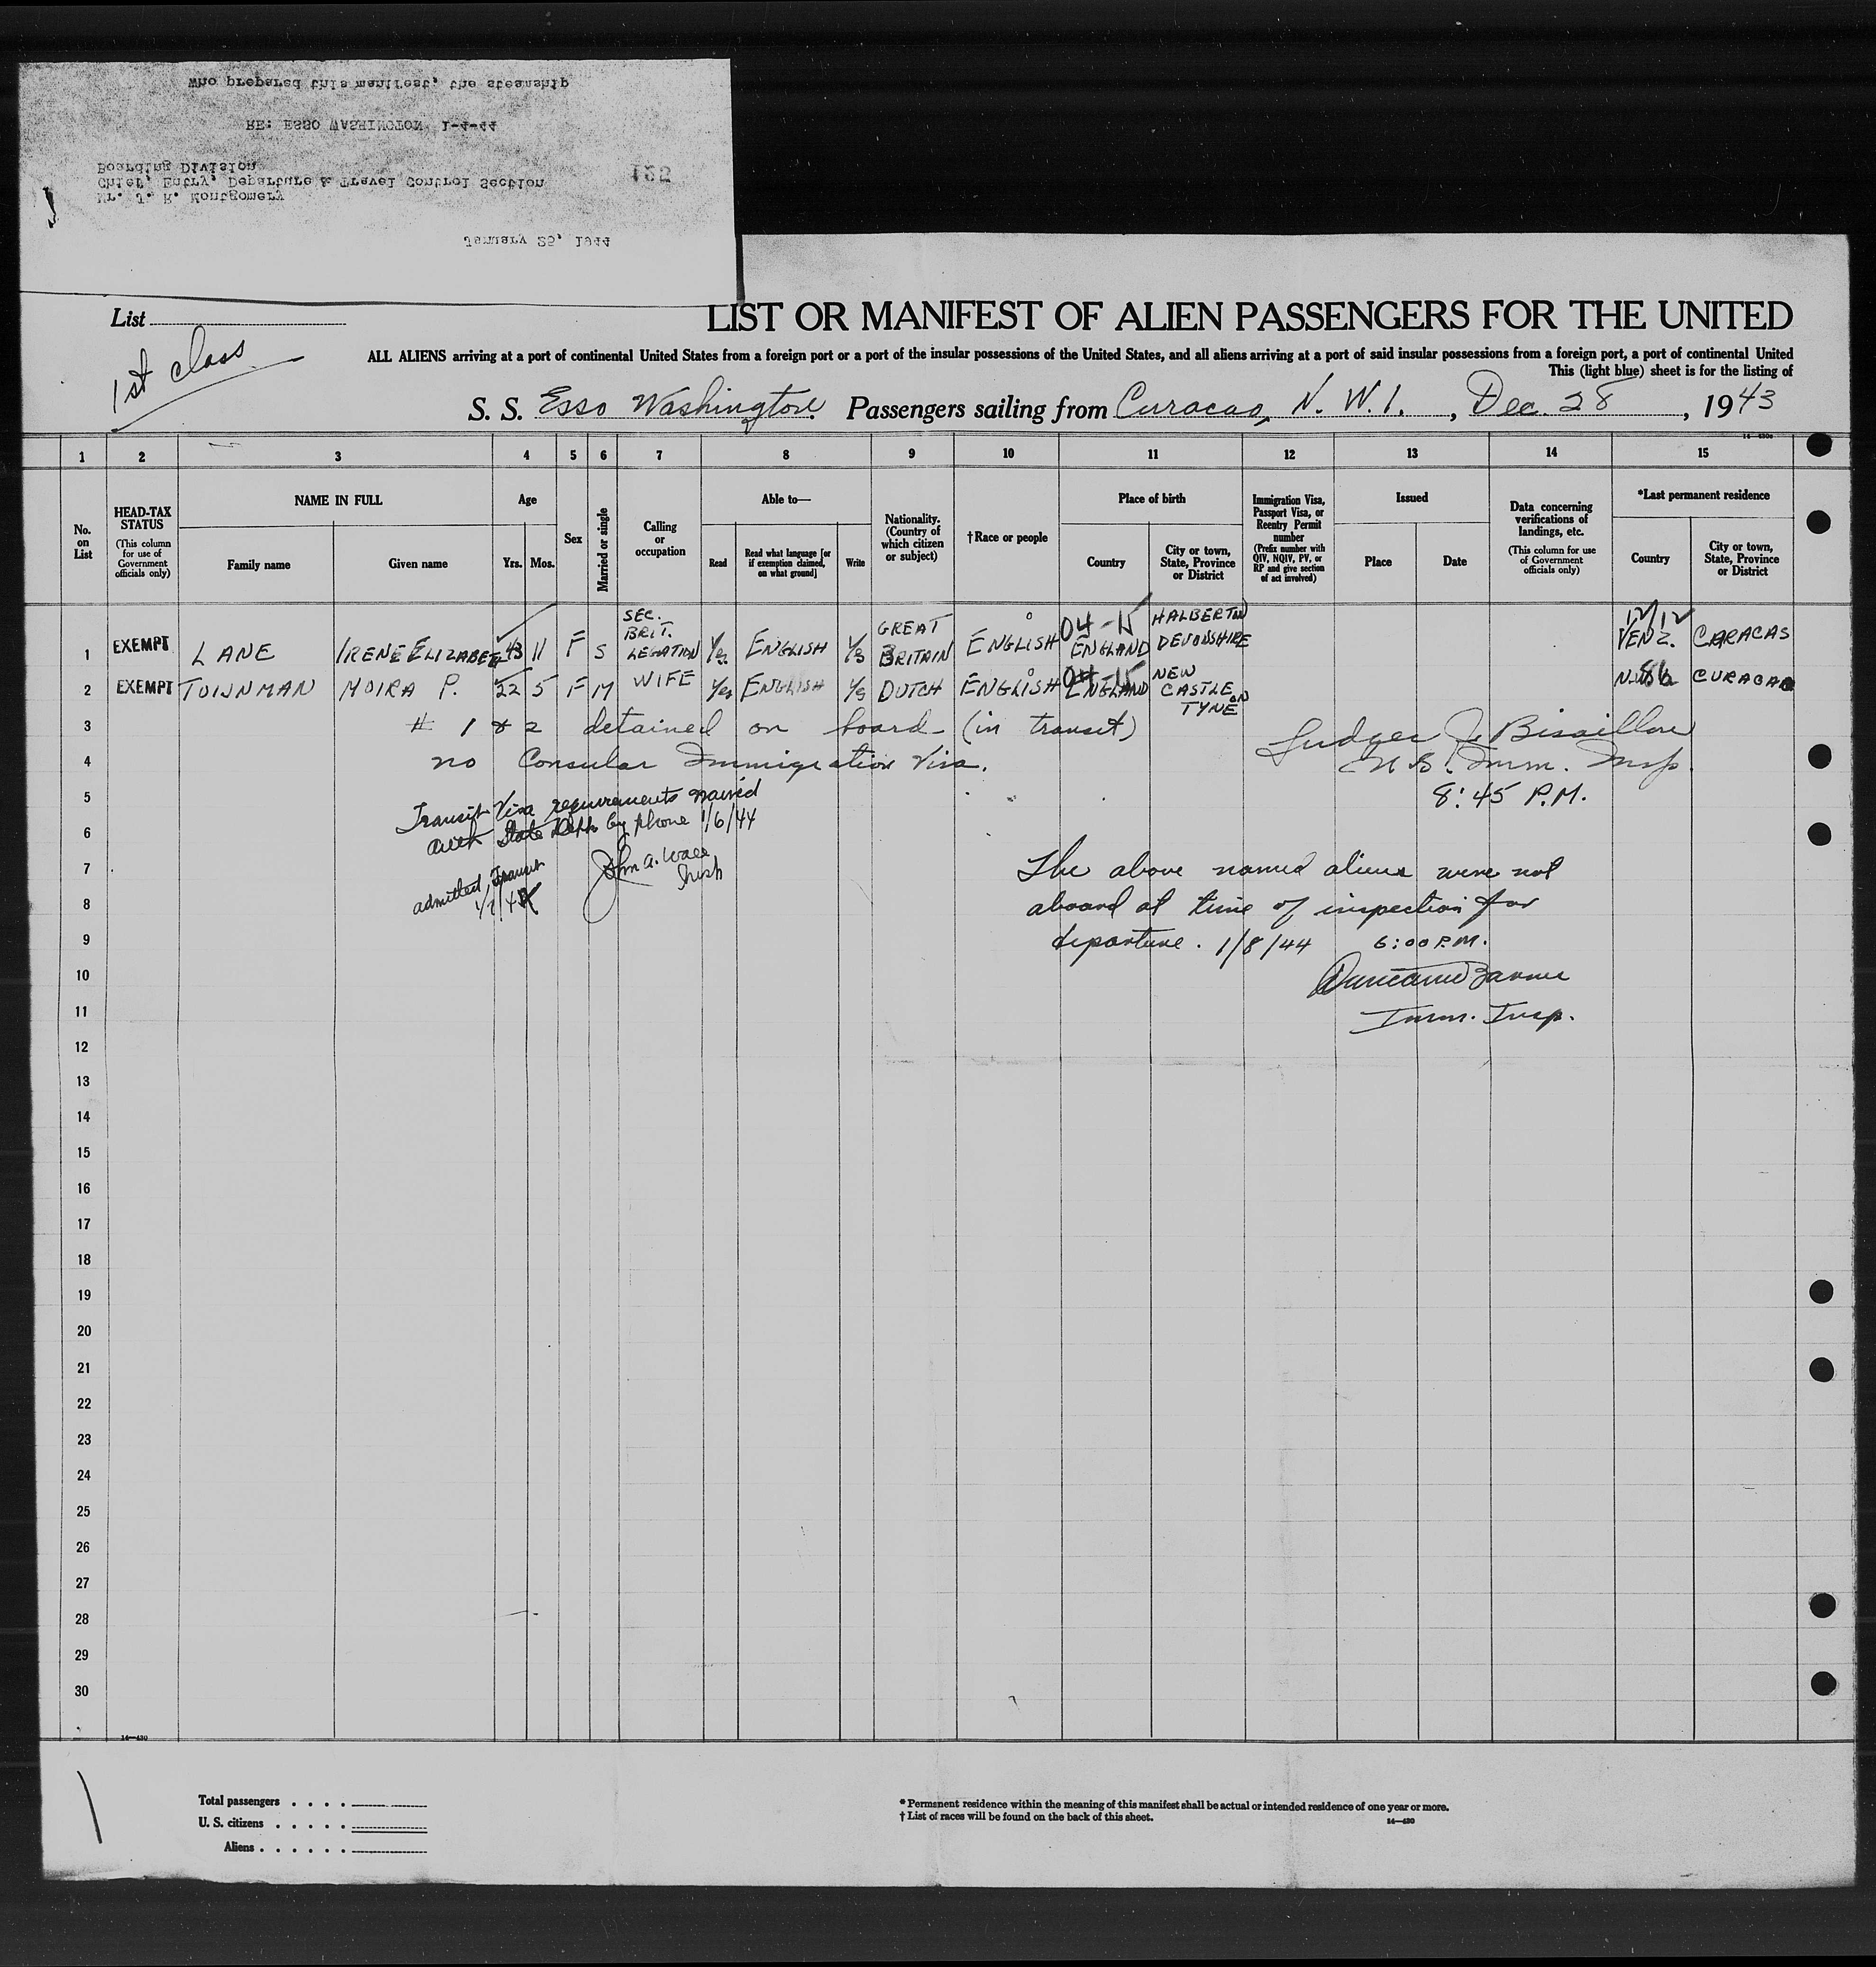 Who prepared this manifest, the steamship
RE: ESSO WASHINGTON 1-4-44
Boarding Division
Chief, Entry, Departure & Travel Control Section
Mr. J. R. Montgomery
January 25, 1944
List
1st class
LIST OR MANIFEST OF ALIEN PASSENGERS FOR THE UNITED
ALL ALIENS arriving at a port of continental United States from a foreign port or a port of the insular possessions of the United States, and all aliens arriving at a port of said insular possessions from a foreign port, a port of continental United
This (light blue) sheet is for the listing of
S. S. Esso Washington Passengers sailing from Curacao, N. W. I., Dec. 28, 1943
1 2 3 4 5 6 7 8 9 10 11 12 13 14 15
No. on List
HEAD-TAX STATUS (This column for use of Government officials only)
NAME IN FULL
Family name
Given name
Age
Yrs. Mos.
Sex
Married or single
Calling or occupation
Able to—
Read
Read what language [or if exemption claimed, on what ground]
Write
Nationality. (Country of which citizen or subject)
†Race or people
Place of birth
Country
City or town, State, Province or District
Immigration Visa, Passport Visa, or Reentry Permit number (Prefix number with QIV, NQIV, PV, or RP and give section of act involved)
Issued
Place
Date
Data concerning verifications of landings, etc. (This column for use of Government officials only)
*Last permanent residence
Country
City or town, State, Province or District
1 EXEMPT LANE IRENE ELIZABETH 43 11 F S SEC. BRIT. LEGATION Yes ENGLISH Yes GREAT BRITAIN ENGLISH 04-15 ENGLAND HALBERTON DEVONSHIRE 12/12 VENZ. CARACAS
2 EXEMPT TUIJNMAN MOIRA P. 22 5 F M WIFE Yes ENGLISH Yes DUTCH ENGLISH 04-15 ENGLAND NEW CASTLE ON TYNE 86 CURACAO
3 # 1 & 2 detained on board (in transit)
4 no Consular Immigration Visa.
U.S. Imm. Insp.
5 8:45 P.M.
Transit Visa requirements waived
6 auth State Dept by phone 1/6/44
7 John A. Wall
Insp
admitted, Transit
8 1/7/44
The above named aliens were not
aboard at time of inspection for
9 departure. 1/8/44 6:00 P.M.
10
11 Imm. Insp.
12
13
14
15
16
17
18
19
20
21
22
23
24
25
26
27
28
29
30
14—430
Total passengers
U. S. citizens
Aliens
* Permanent residence within the meaning of this manifest shall be actual or intended residence of one year or more.
† List of races will be found on the back of this sheet.
14—430